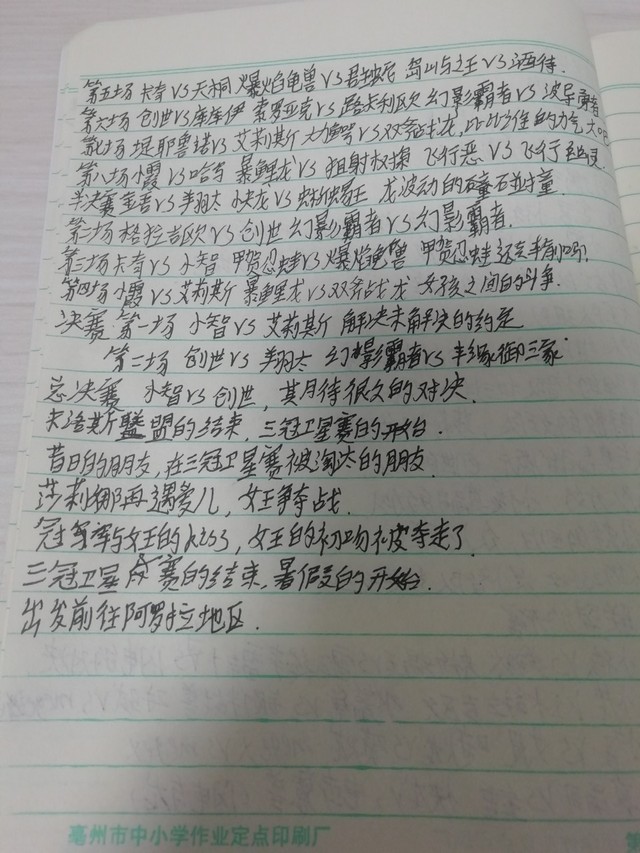 第五场 卡奇VS天桐 爆焰龟兽VS君主蛇 岛山与之王VS洒待.
第六场 创世VS库库伊 索罗亚克VS路卡利欧 幻影霸者VS波导勇者
第七场 提耶鲁诺VS艾莉斯 大比鸟VS双斧战龙,比比谁的力气大吧
第八场 小霞VS哈奇 暴鲤龙VS狙射树枭 飞行恶VS飞行幽灵
半决赛 第一场 翔太 快龙VS 龙波动的碰撞.
第二场 格拉吉欧VS创世 幻影霸者VS幻影霸者.
第三场 卡奇VS小智 甲贺忍蛙VS爆焰龟兽 甲贺忍蛙还克制吗?
第四场 小霞VS艾莉斯 暴鲤龙VS双斧战龙 女孩之间的斗争.
决赛 第一场 小智VS艾莉斯 解决未解决的约定
第二场 创世VS翔太 幻影霸者VS丰缘御三家
总决赛 小智VS创世,其月待很久的对决.
卡洛斯联盟的结束,三冠卫星赛的开始.
昔日的朋友,在三冠卫星赛被淘汰的朋友.
莎莉娜再遇爱儿,女王争夺战.
冠军与女王的kiss,女王的初吻被夺走了.
三冠卫星赛的结束,暑假的开始.
出发前往阿罗拉地区.
亳州市中小学作业定点印刷厂
第